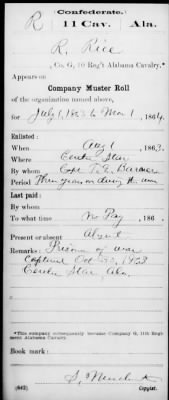 Confederate.
R 11 Cav. Ala.
R. Rice
Co. G, 10 Reg't Alabama Cavalry.*
Appears on
Company Muster Roll
of the organization named above,
for July 1, 1863 to Mar 1, 1864.
Enlisted:
When Aug 1, 1863.
Where Center Star
By whom Capt. T. E.
Period Three years or during the war
Last paid:
By whom
To what time No Pay, 186 .
Present or absent Absent
Remarks: Prisoner of war
Captured Oct 1863
Center Star, Ala.
*This company subsequently became Company G, 11th Regiment Alabama Cavalry.
Book mark:
(642) Copyist.